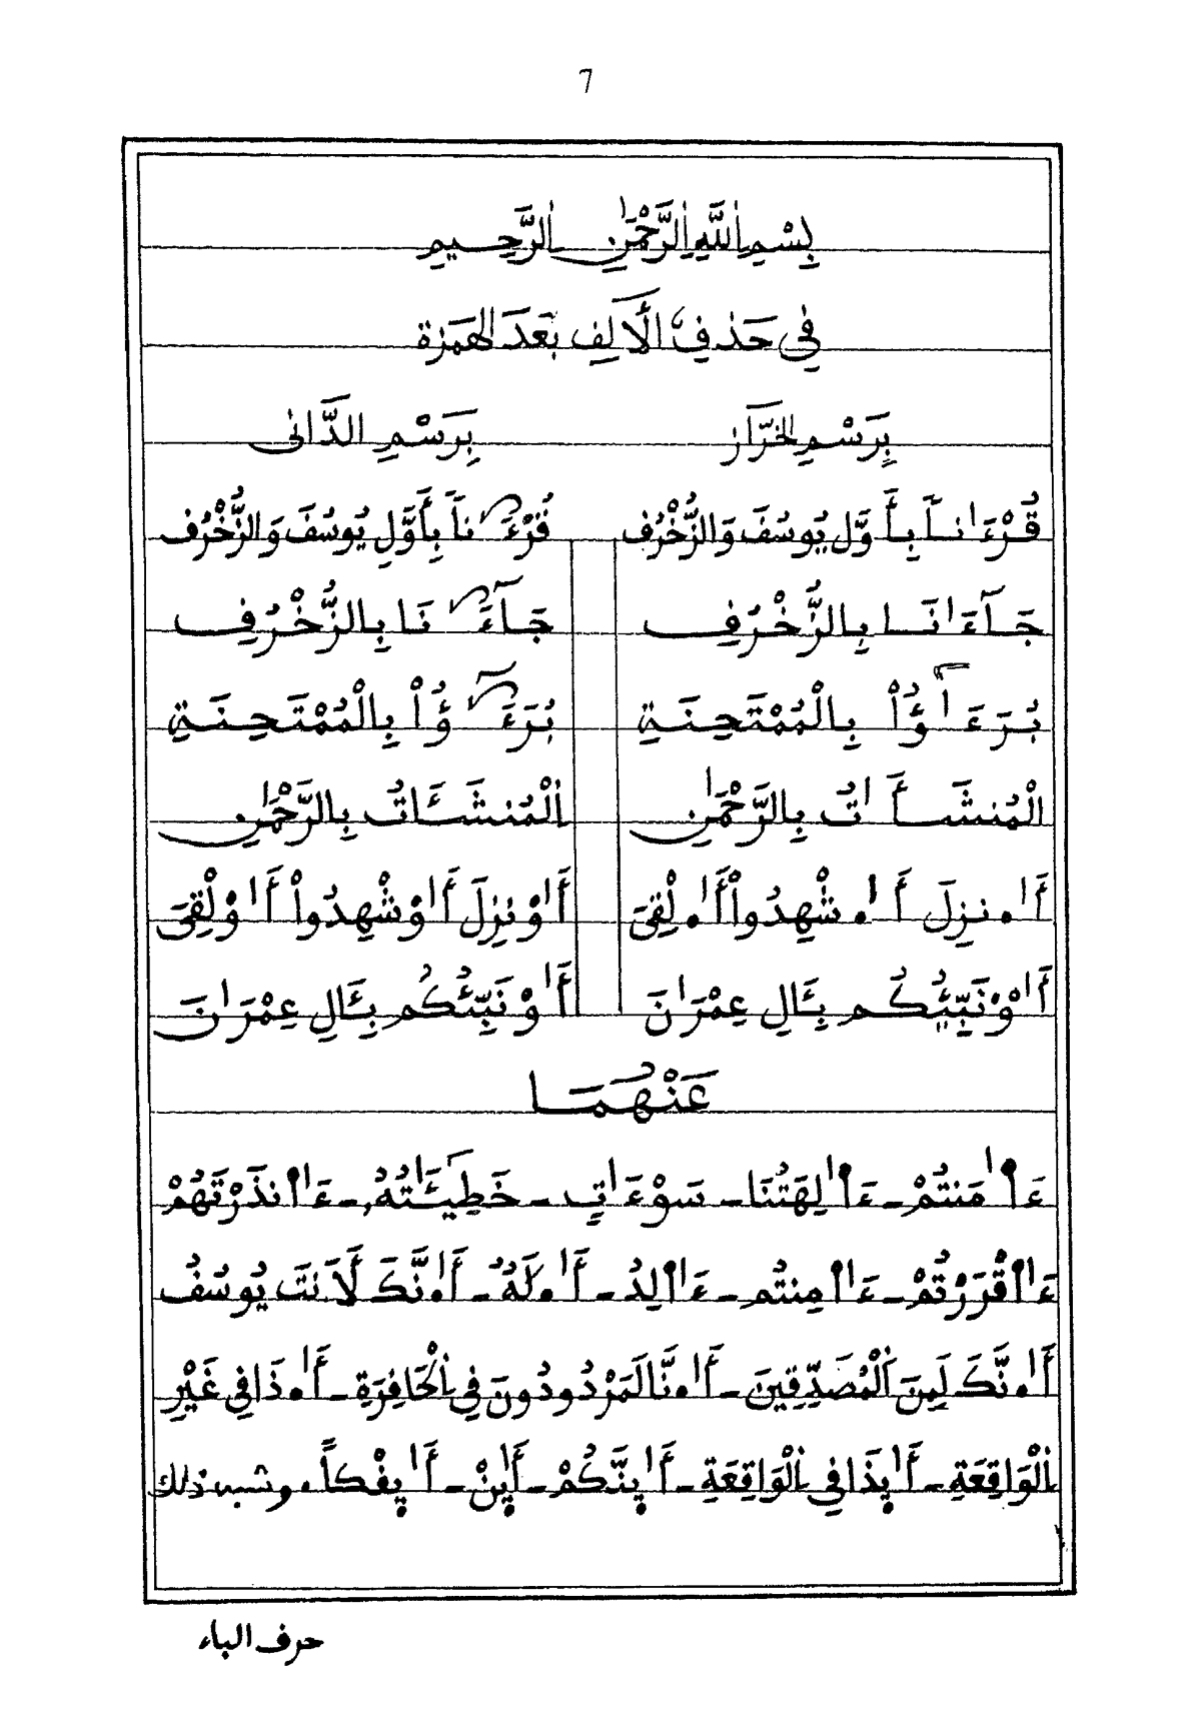 7
بِسْمِ اِ۬للَّهِ اِ۬لرَّحْمَٰنِ اِ۬لرَّحِيمِ
فِي حَذْفِ الْأَلِفِ بَعْدَ الهَمْزَةِ
بِرَسْمِ الخَرَّازِ بِرَسْمِ الدَّانِى
قُرْءَٰناً بِأَوَّلِ يُوسُفَ وَالزُّخْرُفِ قُرْءَٰناً بِأَوَّلِ يُوسُفَ وَالزُّخْرُفِ
جَآءَٰنَا بِالزُّخْرُفِ جَآءَٰنَا بِالزُّخْرُفِ
بُرَءَٰٓؤُاْ بِالْمُمْتَحِنَةِ بُرَءَٰٓؤُاْ بِالْمُمْتَحِنَةِ
الْمُنشَأَٰتُ بِالرَّحْمَٰنِ اَ۬لْمُنشَـَٔاتُ بِالرَّحْمَٰنِ
أَٰ۟نزِلَ أَٰ۟شْهِدُواْ أَٰ۟لْقِيَ أَٰوْنزِلَ أَٰوْشْهِدُواْ أَٰوْلْقِيَ
أَٰوْنَبِّئُكُم بِـَٔالِ عِمْرَٰنَ أَٰوْنَبِّئُكُم بِـَٔالِ عِمْرَٰنَ
عَنْهُمَا
ءَاٰ۬مَنتُمْ ـ ءَاٰ۬لِهَتُنَا ـ سَوْءَٰتِ ـ خَطِيٓـَٰٔتُهُۥ ـ ءَا۬نذَرْتَهُمْ
ءَا۬قْرَرْتُمْ ـ ءَا۬مِنتُم ـ ءَا۬لِدُ ـ أَٰ۟لَهٌ ـ أَٰ۟نَّكَ لَأَنتَ يُوسُفُ
أَٰ۟نَّكَ لَمِنَ اَ۬لْمُصَدِّقِينَ ـ أَٰ۟نَّا لَمَرْدُودُونَ فِي اِ۬لْحَافِرَةِ ـ أَٰ۟ذَا فِي غَيْرِ
اِ۬لْوَاقِعَةِ ـ أَٰيِذَا فِي اِ۬لْوَاقِعَةِ ـ أَٰيِنَّكُمْ ـ أَٰيِنْ ـ أَٰيِفْكاً. وشبه ذلك
حرف الباء